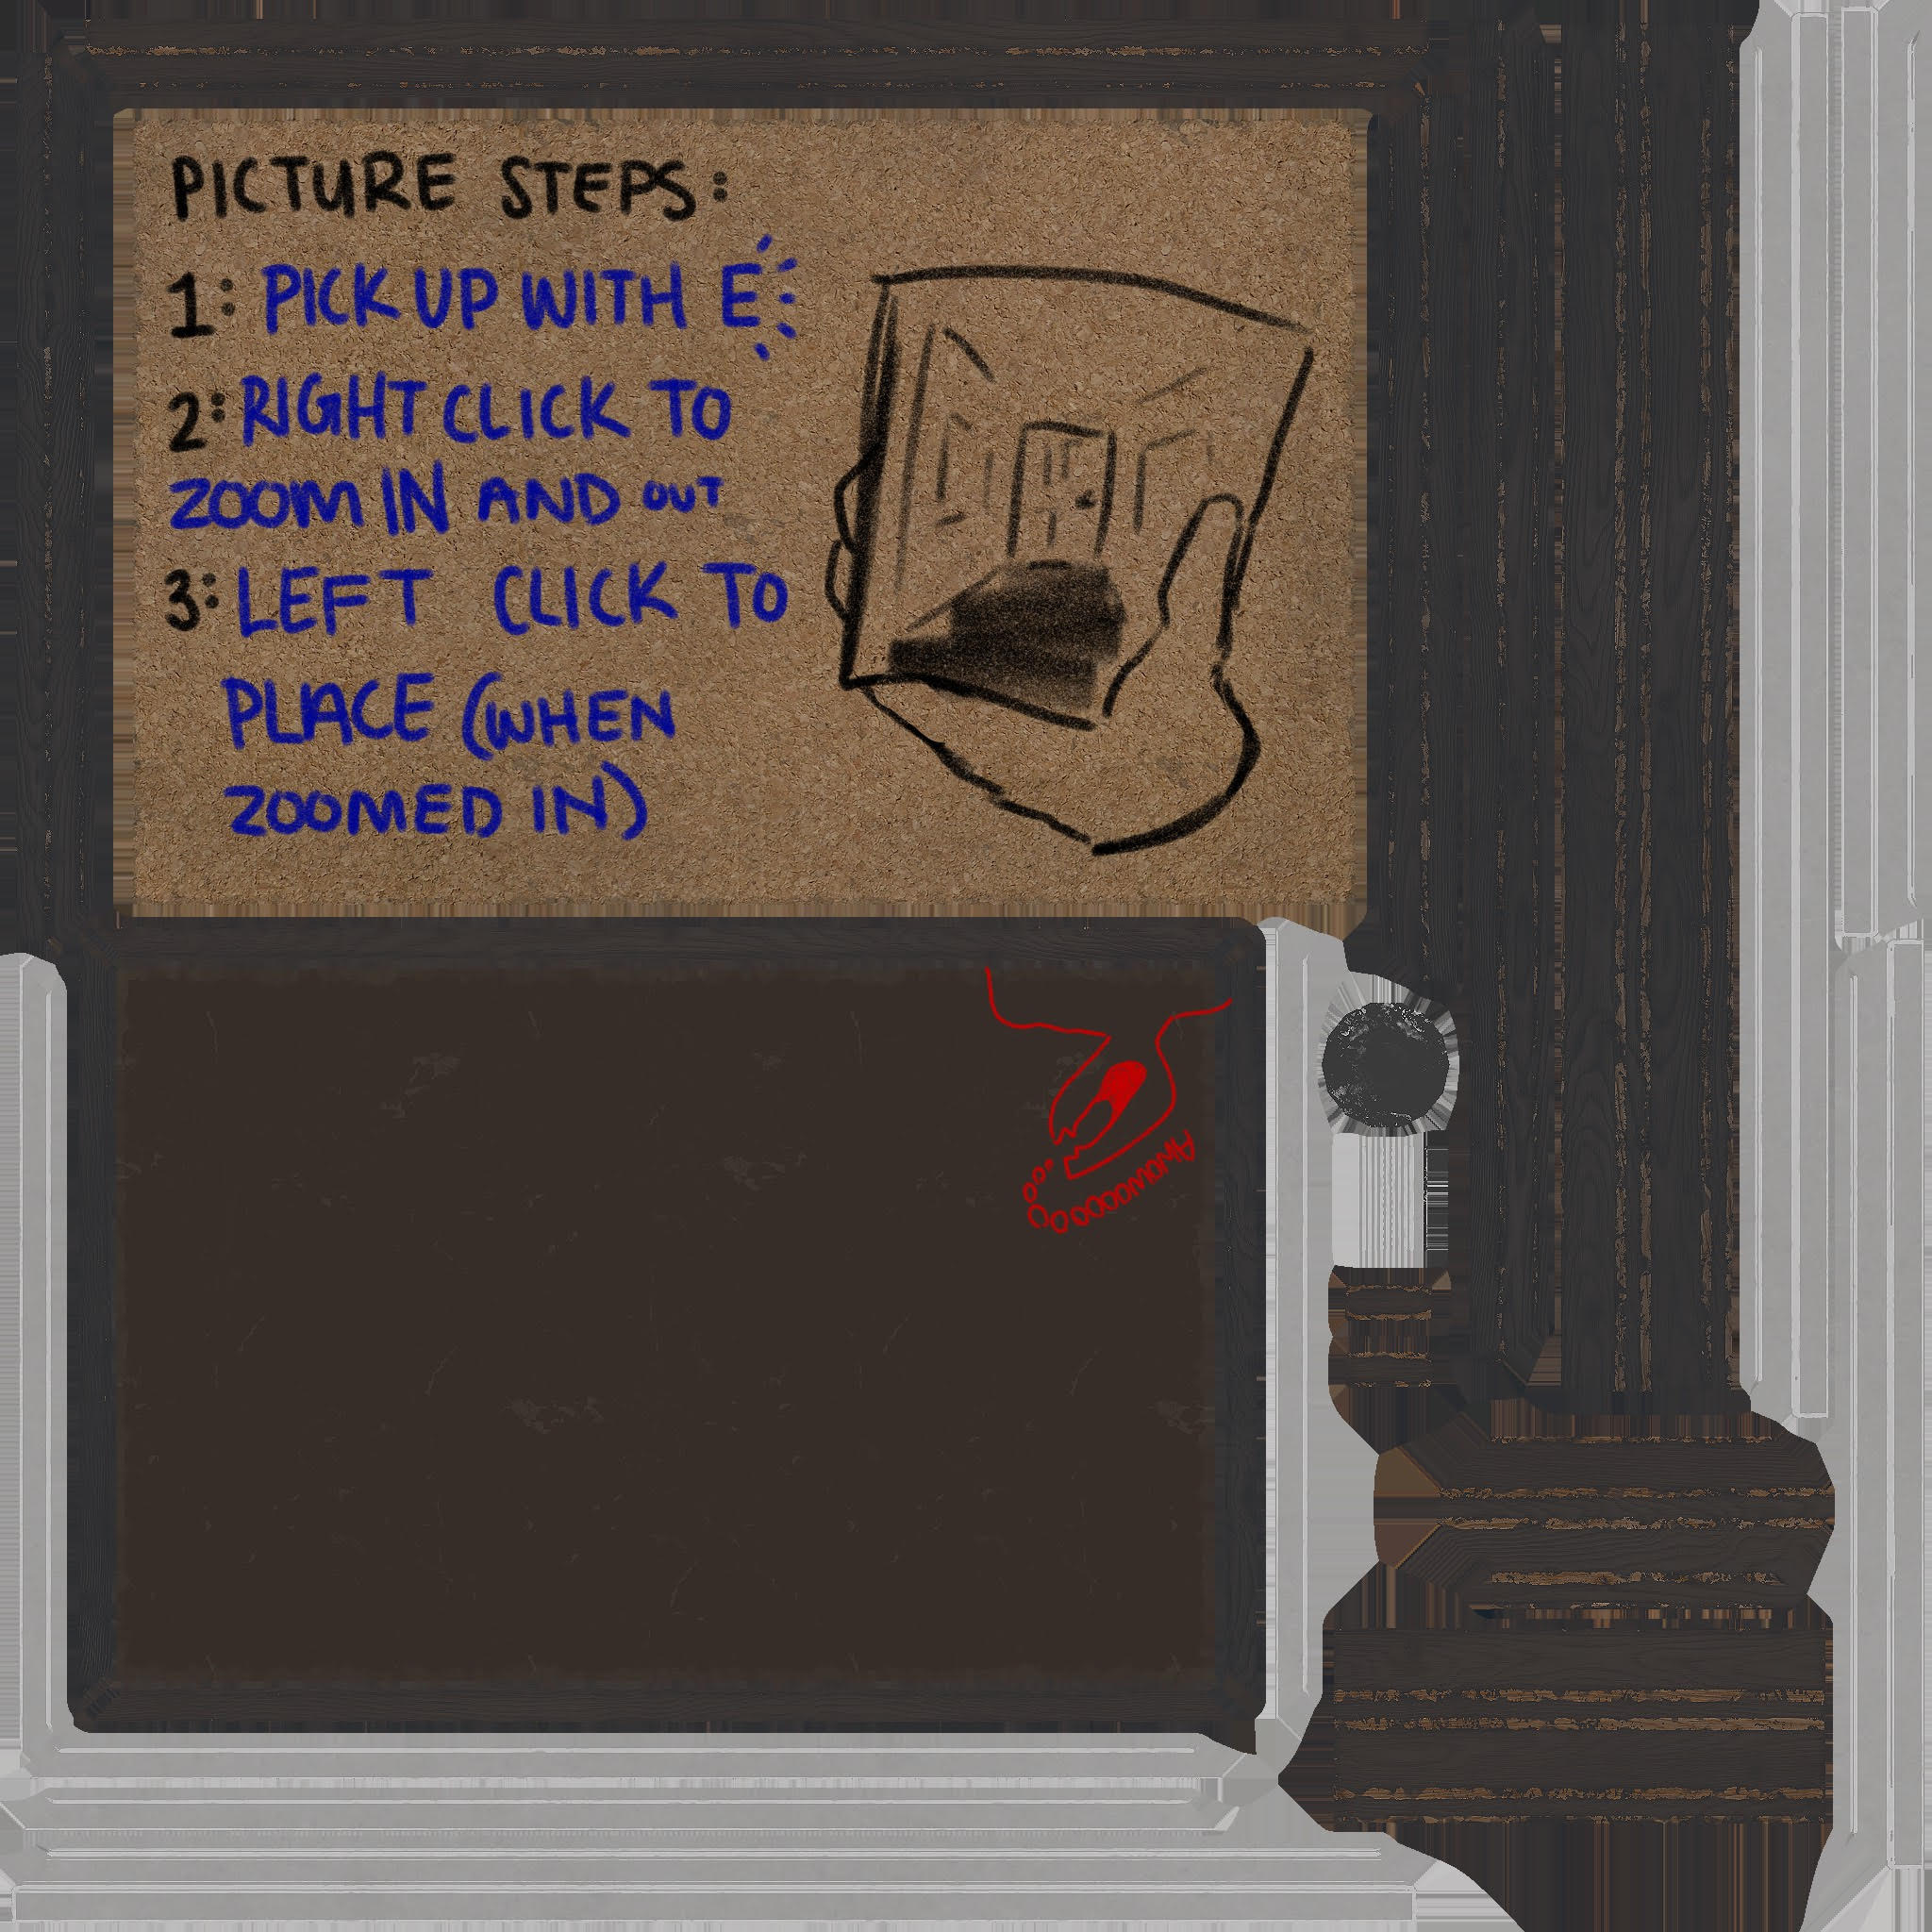 PICTURE STEPS:
1: PICK UP WITH E
2: RIGHT CLICK TO
ZOOM IN AND OUT
3: LEFT CLICK TO
PLACE (WHEN
ZOOMED IN)